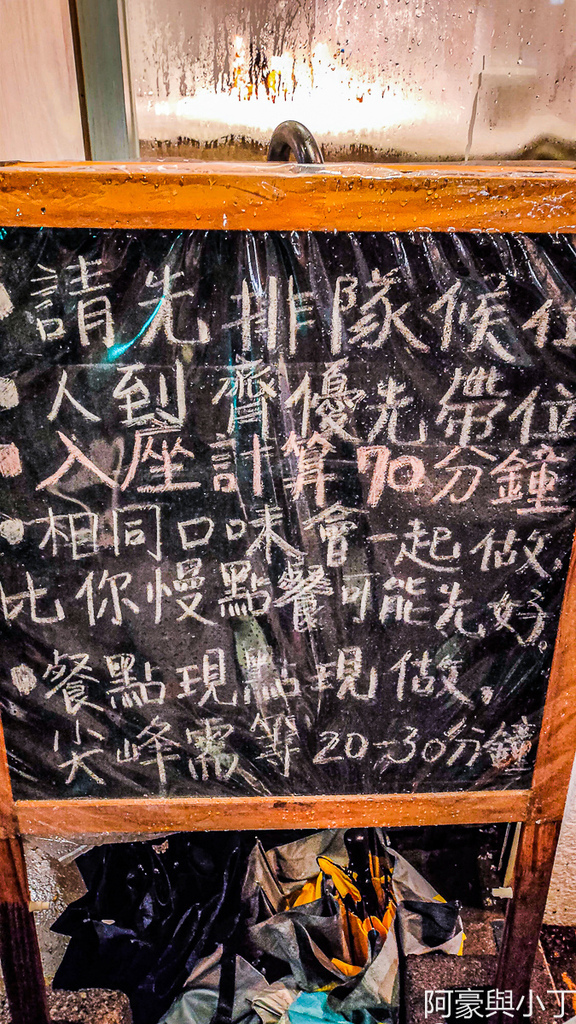 請先排隊候位
人到齊優先帶位
入座計算70分鐘
相同口味會一起做,
比你慢點餐可能先好。
餐點現點現做,
尖峰需等20-30分鐘
阿豪與小丁